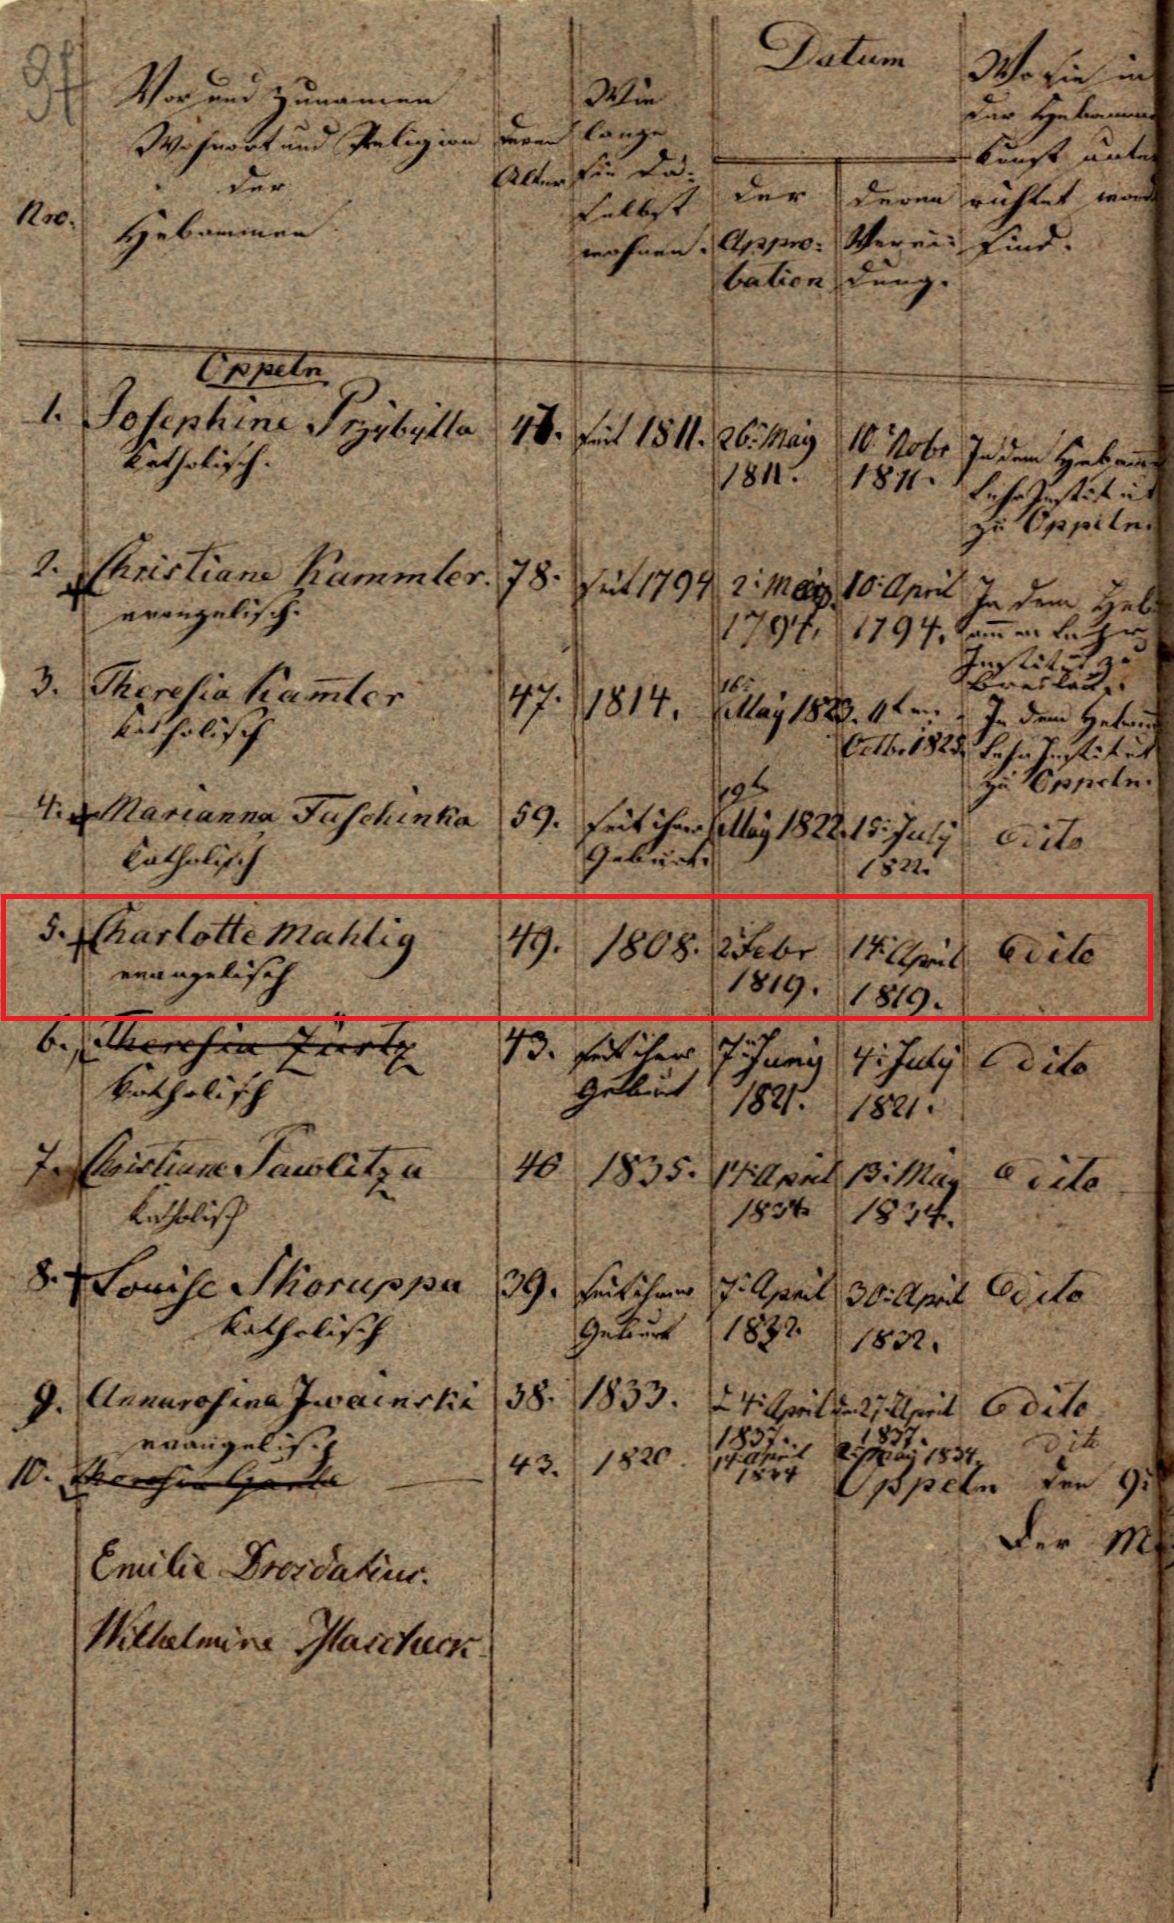 Datum
Vor und Zunamen
Wohnort und Religion
der
Hebammen
Nro.
deren
Alter
Wie
lange
sie da-
selbst
wohnen.
der
Appro-
bation
deren
Verei-
dung.
Wo sie in
der
Kunst
richtet
sind.
Oppeln
1. Josephine Przybylla seit 1811. 26: May 10: Nobr In dem
katholisch. 1811. 1811.
Lehr Institut
zu Oppeln.
2. Christiane Kammler. 78. seit 1794 2: 10: April In dem Heb
evangelisch. 1794. 1794. ammen Lehr
Institut zu
Breslau.
3. Theresia Kam̅ler 47. 1814. 16: May 1823. In dem
katholisch Octbr Lehr Institut
zu Oppeln.
4. Marianna Fuschinka 59. seit ihrer 19t May 1822. 15: July dito
katholisch Geburt. 1822.
5. Charlotte Mahlig 49. 1808. 2 Febr 14: April dito
evangelisch 1819. 1819.
6. Theresia 43. seit ihrer 7: Juny 4: July dito
katholisch Geburt 1821. 1821.
7. Christiane Pawlitza 1835. 14: April 13: May dito
katholisch 1834 1834.
8. Louise Skoruppa 39. seit ihrer 7: April 30: April dito
katholisch Geburt 1832. 1832.
9. Annarosina Iwainski 38. 1833. 24: April 27: April dito
evangelisch 1837. 1837.
10. Theresia 43. 1820. 14 April May 1834. dito
Oppeln den 9:
Der
Emilie
Wilhelmine